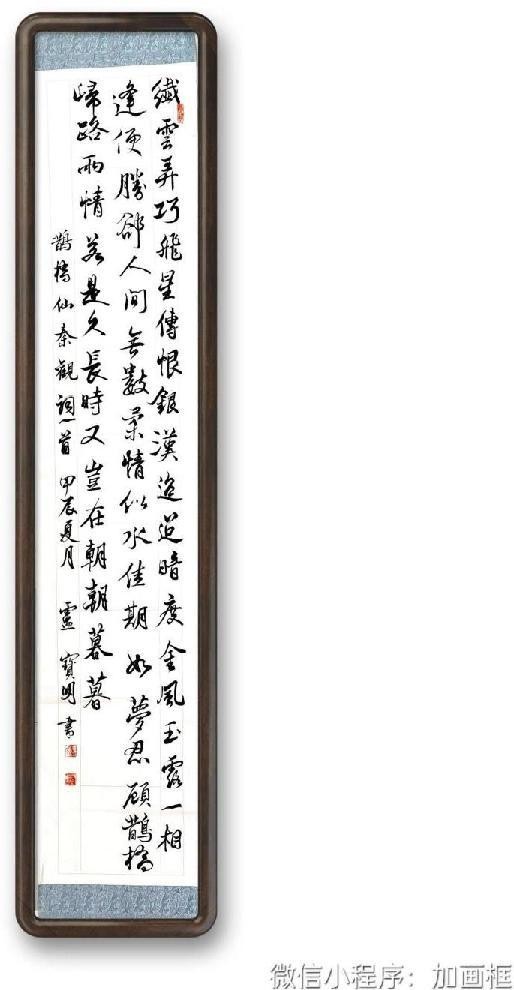 纖雲弄巧飛星傳恨銀漢迢迢暗度金風玉露一相
逢便勝卻人間無數柔情似水佳期如夢忍顧鵲橋
歸路兩情若是久長時又豈在朝朝暮暮
鵲橋仙秦觀詞一首 甲辰夏月 寶明書
微信小程序：加画框